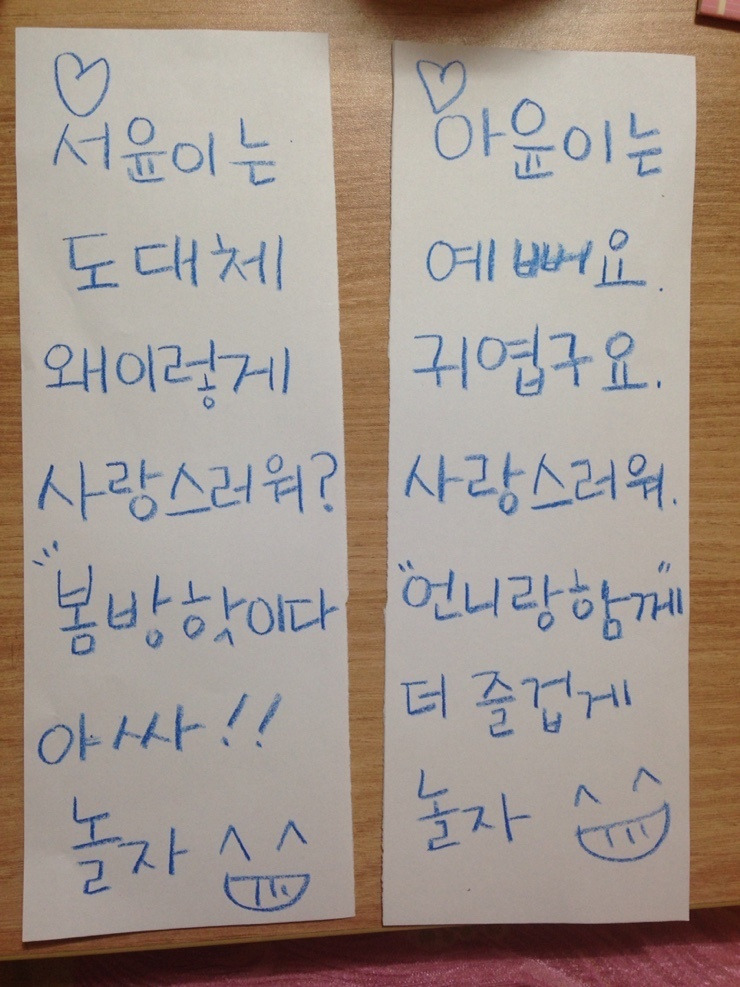 서윤이는
도대체
왜이렇게
사랑스러워?
"봄방핫이다
아싸!!
놀자
아윤이는
예뻐요.
귀엽구요.
사랑스러워.
"언니랑함께"
더 즐겁게
놀자